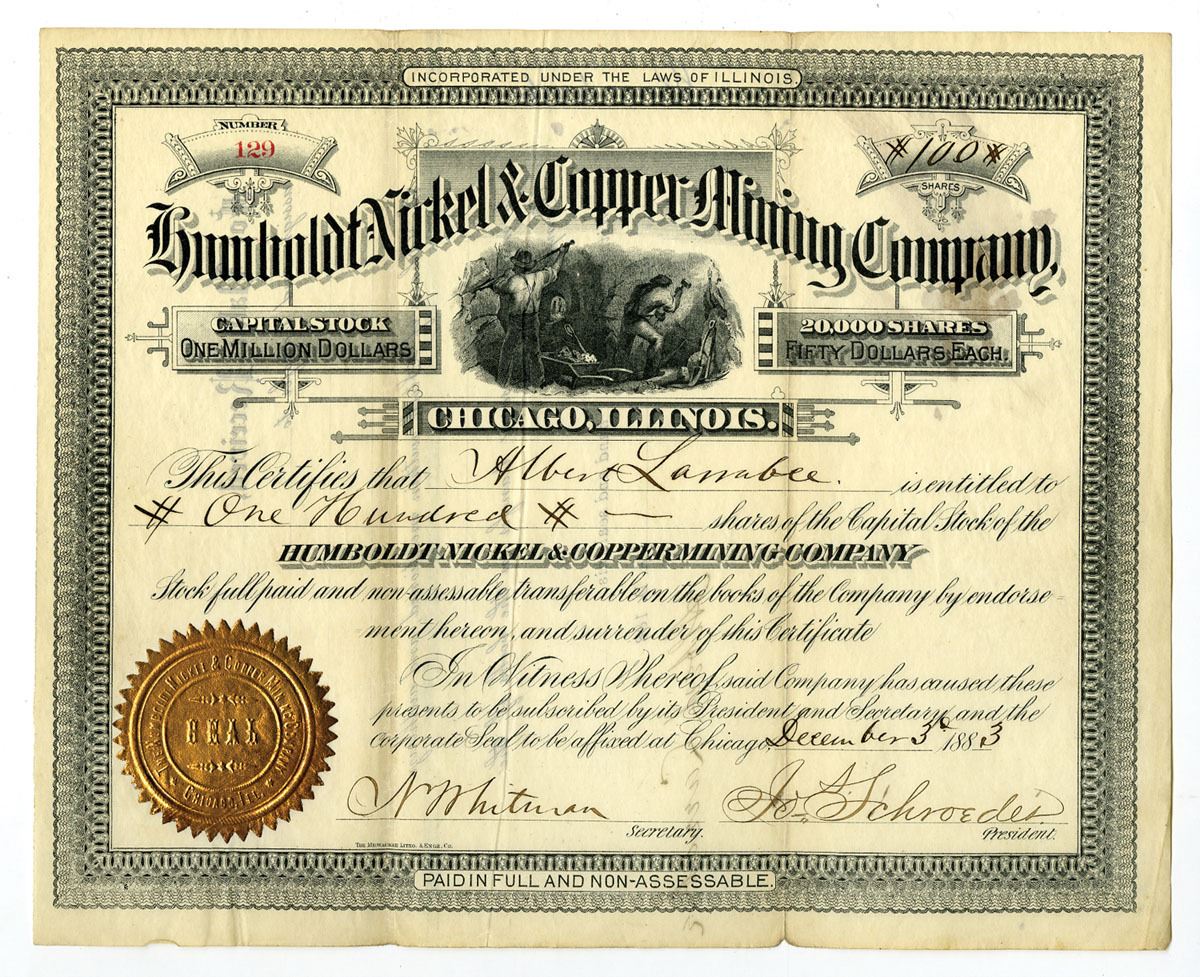 INCORPORATED UNDER THE LAWS OF ILLINOIS.
NUMBER
129
#100#
SHARES
Humboldt Nickel & Copper Mining Company,
CAPITAL STOCK
ONE MILLION DOLLARS
20,000 SHARES
FIFTY DOLLARS EACH.
CHICAGO, ILLINOIS.
This Certifies that Albert Larrabee. is entitled to
# One Hundred # — shares of the Capital Stock of the
HUMBOLDT NICKEL & COPPER MINING COMPANY
Stock full paid and non-assessable, transferable on the books of the Company by endorse=
ment hereon, and surrender of this Certificate
In Witness Whereof, said Company has caused these
presents to be subscribed by its President and Secretary and the
Corporate Seal to be affixed at Chicago, December 3d 1883
SEAL
CHICAGO, ILL.
N Whitman
Secretary.
Schroeder
President.
THE MILWAUKEE LITHO. & ENGR. CO.
PAID IN FULL AND NON-ASSESSABLE.